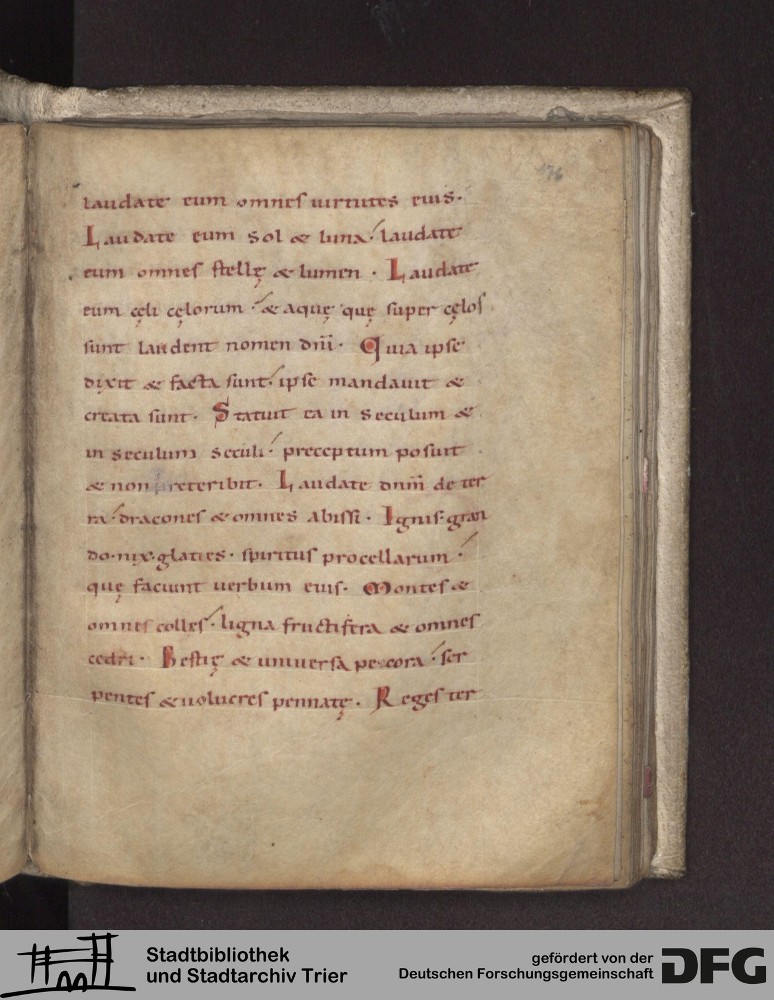 176
laudate eum omnes uirtutes eius.
Laudate eum sol & luna. laudate
eum omnes stellę & lumen . Laudate
eum cęli cęlorum . & aquę quę super cęlos
sunt laudent nomen dñi . Quia ipse
dixit & facta sunt. ipse mandauit &
creata sunt . Statuit ea in seculum &
in seculum seculi . preceptum posuit
& non preteribit . Laudate dnm̃ de ter
ra . dracones & omnes abissi . Ignis. gran
do. nix. glacies . spiritus procellarum .
quę faciunt uerbum eius . Montes &
omnes colles . ligna fructifera & omnes
cedri . Bestię & uniuersa pecora . ser
pentes & uolucres pennatę . Reges ter
Stadtbibliothek
und Stadtarchiv Trier
gefördert von der
Deutschen Forschungsgemeinschaft
DFG